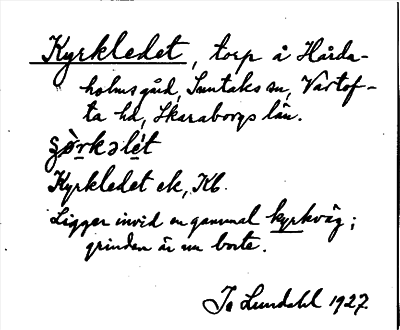 Kyrkledet, torp å Hårda-
holmsgård, Suntaks sn, Vartof-
ta hd, Skaraborgs län.
Kyrkledet ek, Kb.
Ligger invid en gammal kyrkväg;
grinden är nu borta.
Io Lundahl 1927.